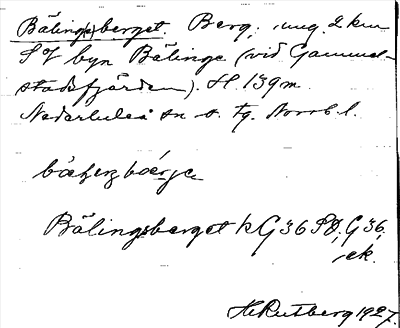 Bäling(s)berget. Berg, ung. 2 km
SV byn Bälinge (vid Gammel-
stadsfjärden). H. 139 m.
Nederluleå sn o. tg. Norrb. l.
Bälingsberget kG 36 SO, G 36,
ek.
H. Rutberg 1927.